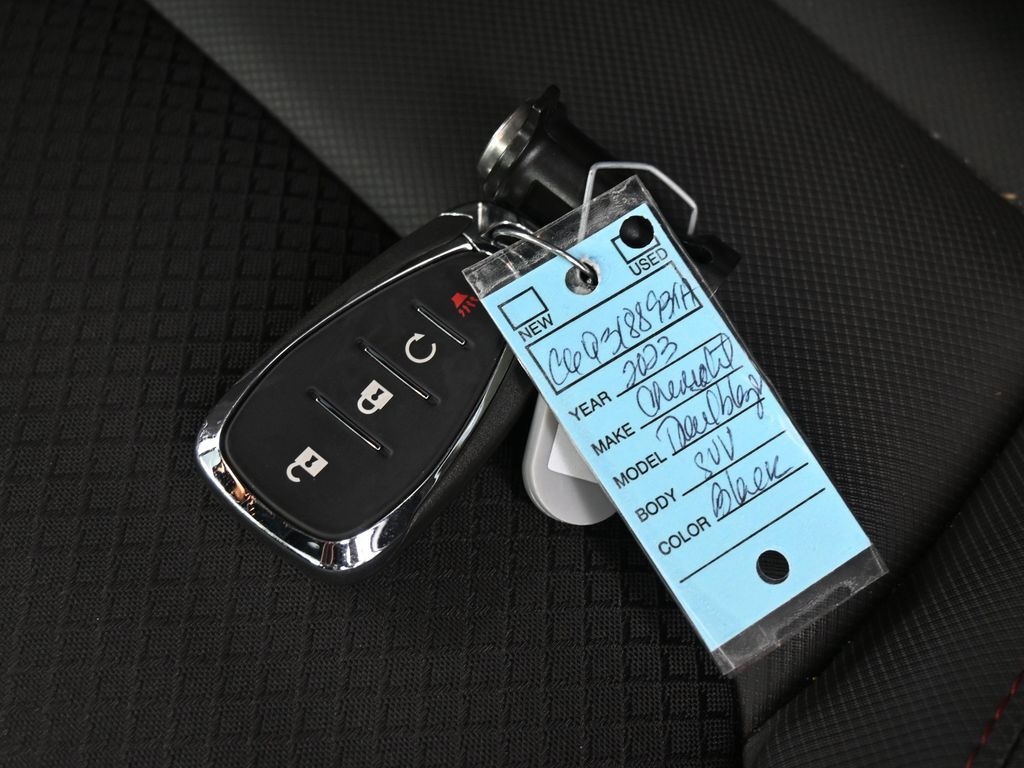 USED
NEW
YEAR 2023
MAKE Chevrolet
MODEL Trailblazer
BODY SUV
COLOR Black